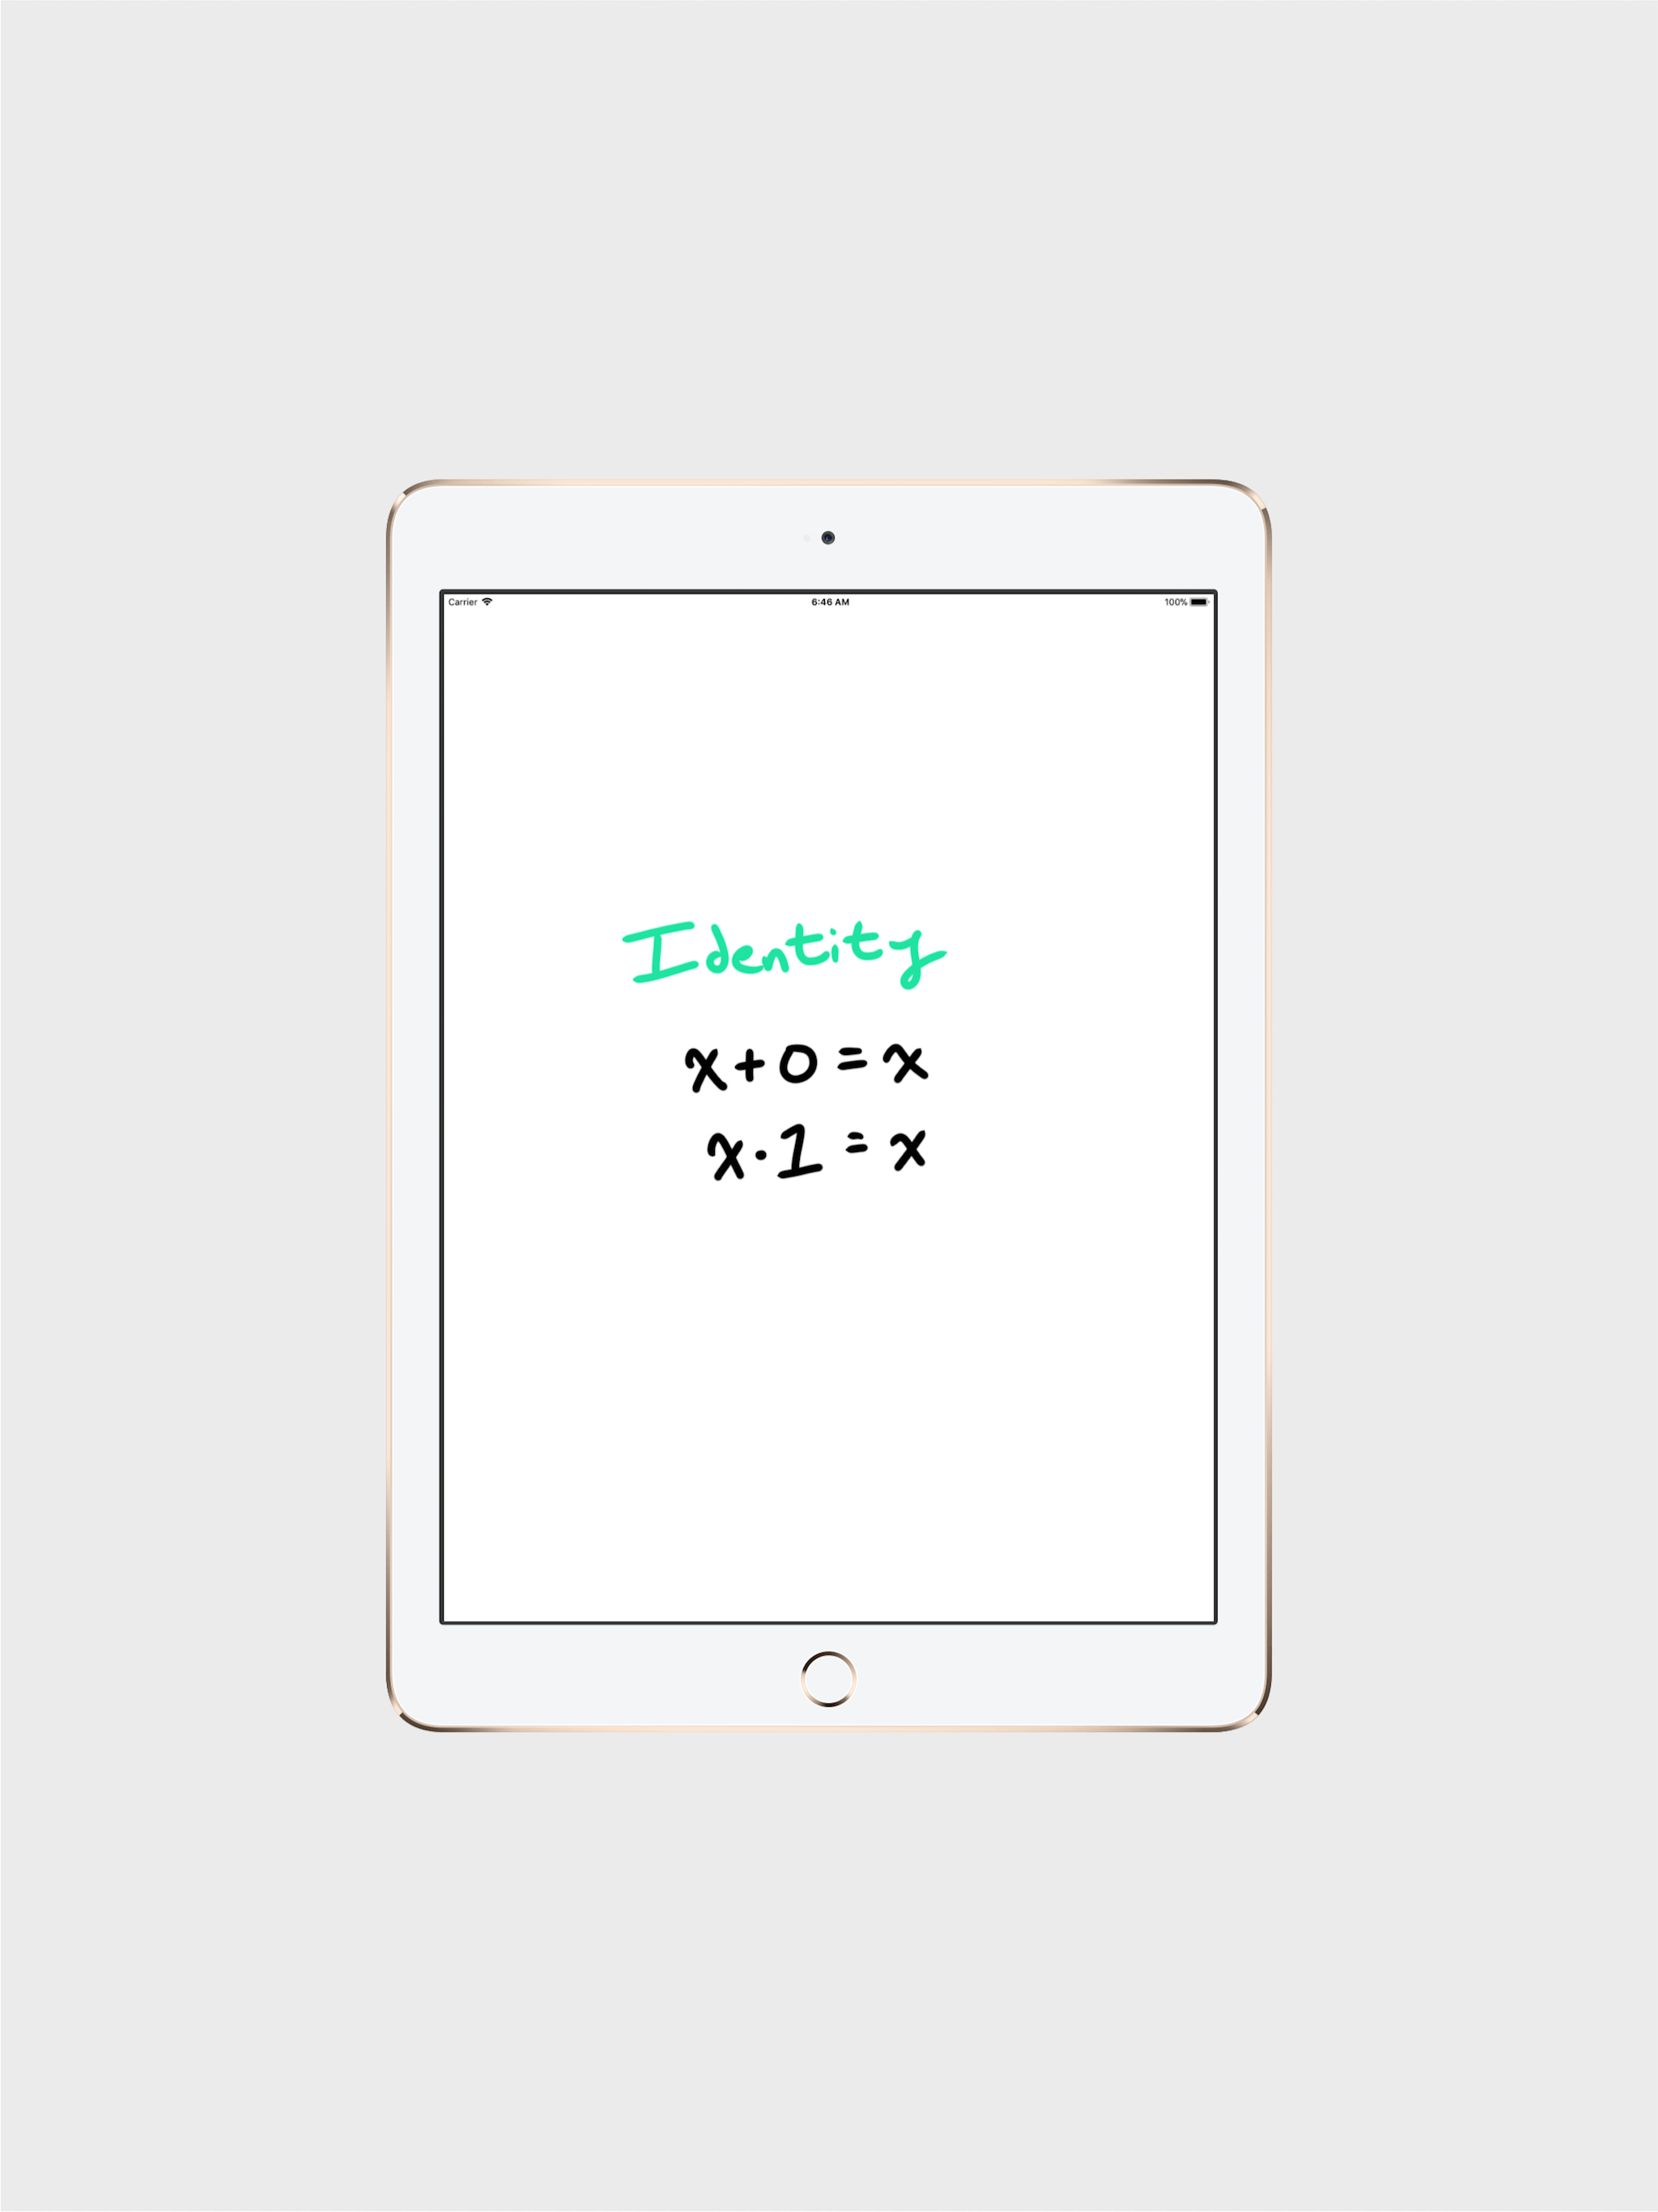 Carrier 6:46 AM 100%
Identity
x+0=x
x·1=x